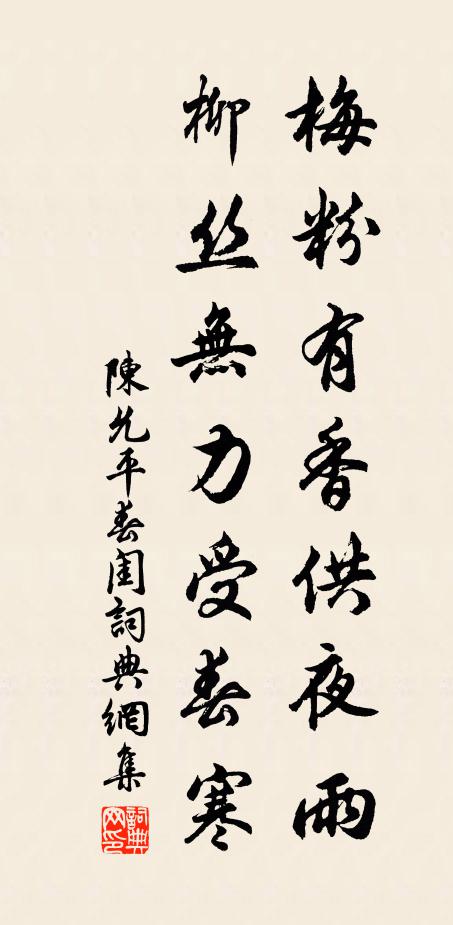 梅粉有香供夜雨
柳丝無力受春寒
陳允平春閨詞典網集
詞典網印